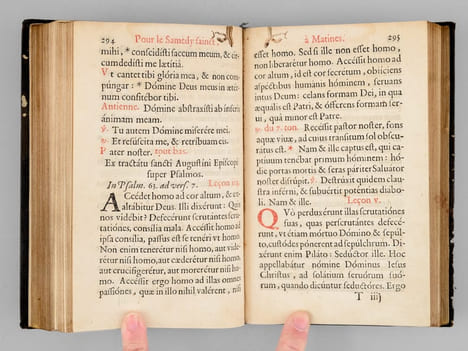 294 Pour le Samedy sainct
mihi, * conscidisti saccum meum, & cir-
cumdedisti me lætitiâ.
Vt cantet tibi glória mea, & non com-
púngar: * Dómine Deus meus in ætér-
num confitébor tibi.
Antienne. Dómine abstraxisti ab ínferis
ánimam meam.
℣. Tu autem Dómine miserére mei.
℟. Et resúscita me, & retríbuam eis.
Pater noster. tout bas.
Ex tractátu sancti Augustíni Epíscopi
super Psalmos.
In Psalm. 63. ad vers. 7. Leçon iiij.
Accédet homo ad cor altum, & ex-
altábitur Deus. Illi dixérunt: Quis
nos vidébit? Defecérunt scrutántes scru-
tatiónes, consília mala. Accéssit homo ad
ipsa consília, passus est se tenéri vt homo.
Non enim tenerétur nisi homo, aut vide-
rétur nisi homo, aut cæderétur nisi homo,
aut crucifigerétur, aut morerétur nisi ho-
mo. Accéssit ergo homo ad illas omnes
passiónes, quæ in illo nihil valérent, nisi
à Matines. 295
esset homo. Sed si ille non esset homo,
non liberarétur homo. Accéssit homo ad
cor altum, id est cor secrétum, obíiciens
aspéctibus humánis hóminem, seruans
intus Deum: celans formam Dei, in qua
æquális est Patri, & ófferens formam ser-
ui, quâ minor est Patre.
℟. du 7. ton. Recéssit pastor noster, fons
aquæ viuæ, ad cuius tránsitum sol obscu-
rátus est. * Nam & ille captus est, qui ca-
ptíuum tenébat primum hóminem: hó-
die portas mortis & seras páriter Saluátor
noster disrúpit. ℣. Destrúxit quidem clau-
stra inférni, & subuértit poténtias diábo-
li. Nam & ille. Leçon v.
Qvò perduxérunt illas scrutatiónes
suas, quas perscrutántes defecé-
runt, vt étiam mórtuo Dómino & sepúl-
to, custódes pónerent ad sepúlchrum. Di-
xérunt enim Piláto: Sedúctor ille. Hoc
appellabátur nómine Dóminus Iesus
Christus, ad solátium seruórum suó-
rum, quando dicúntur seductóres. Ergo
T iiij